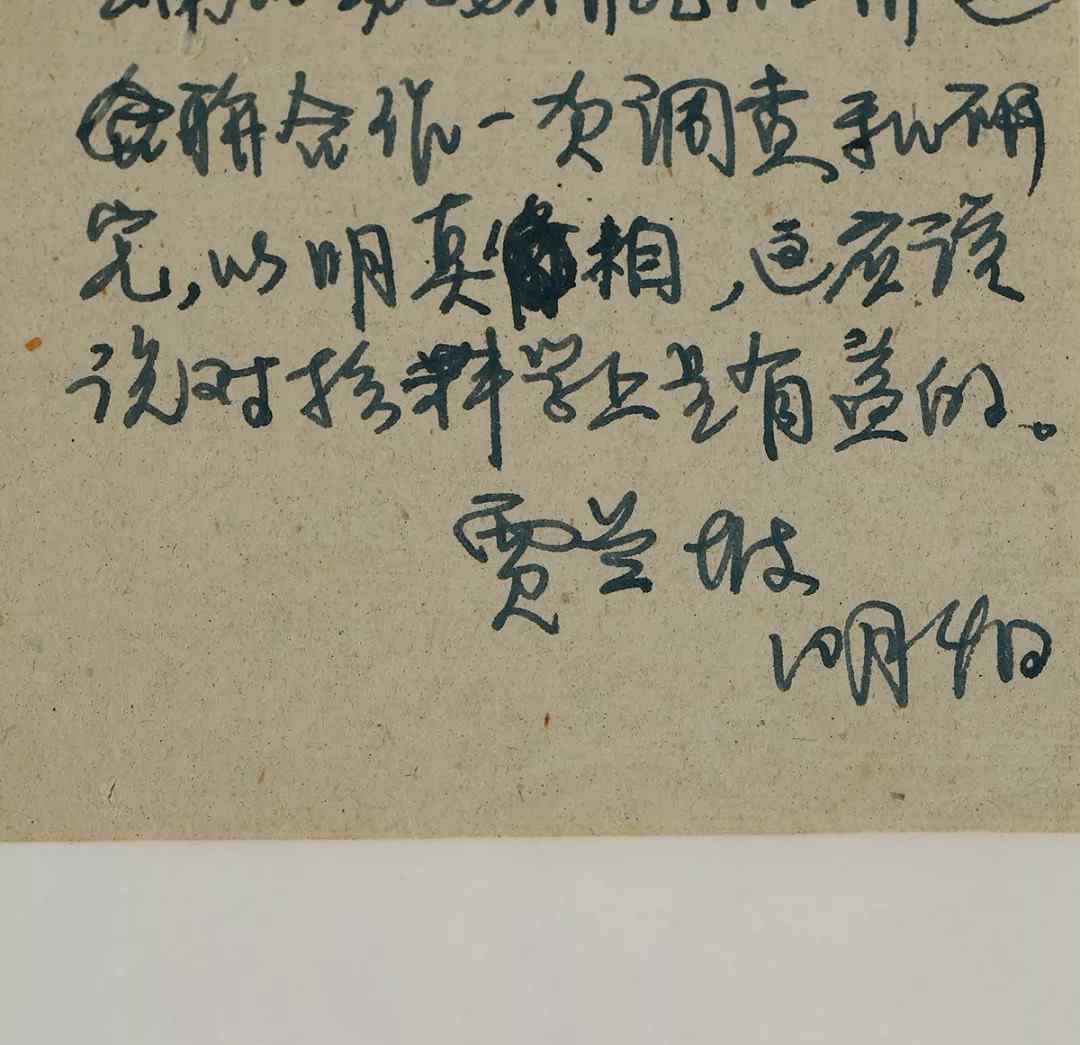 联合作一次调查和研
究，以明真相，这应该
说对于科学上是有益的。
贾兰坡
明柏